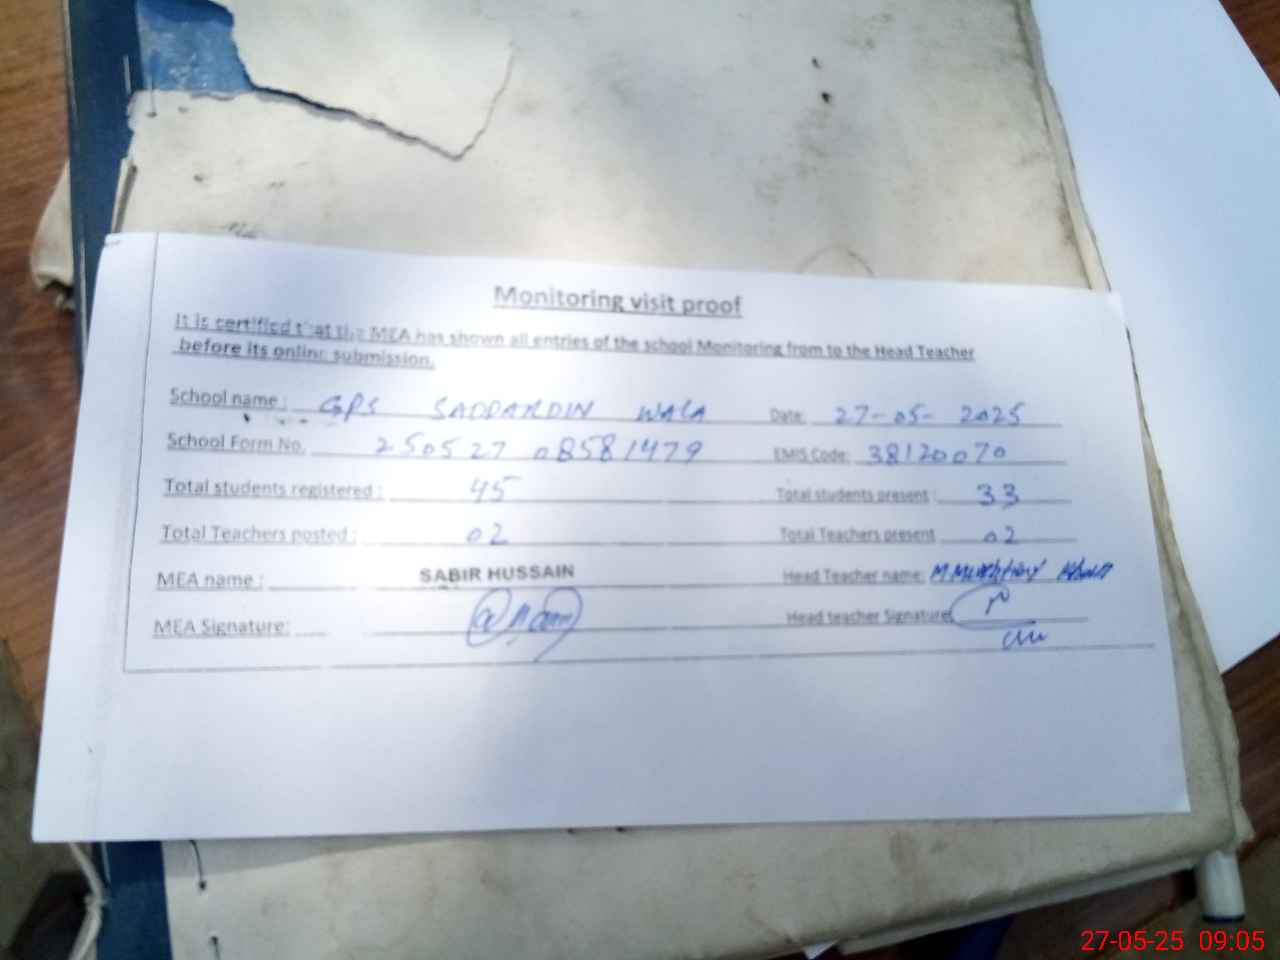 Monitoring visit proof
It is certified that the MEA has shown all entries of the school Monitoring from to the Head Teacher
before its online submission.
School name : GPS SADDARDIN WALA Date: 27-05-2025
School Form No. 250527 08581479 EMIS Code: 38120070
Total students registered : 45 Total students present : 33
Total Teachers posted : 02 Total Teachers present 02
MEA name : SABIR HUSSAIN Head Teacher name: M. Khan
MEA Signature: Head teacher Signature
27-05-25 09:05